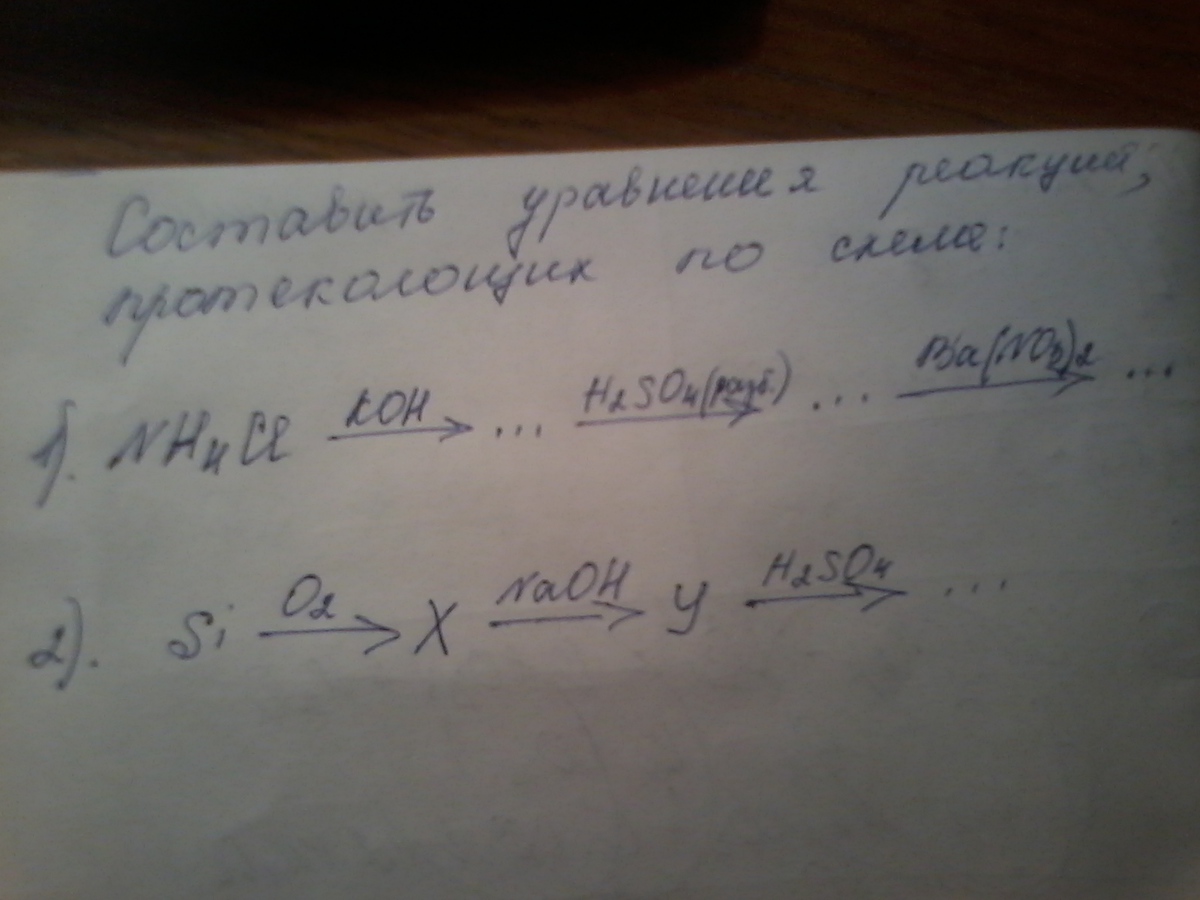 Составить уравнения реакций,
протекающих по схеме:
1). NH₄Cl —KOH→ ... —H₂SO₄(разб.)→ ... —Ba(NO₃)₂→ ...
2). Si —O₂→ X —NaOH→ У —H₂SO₄→ ...